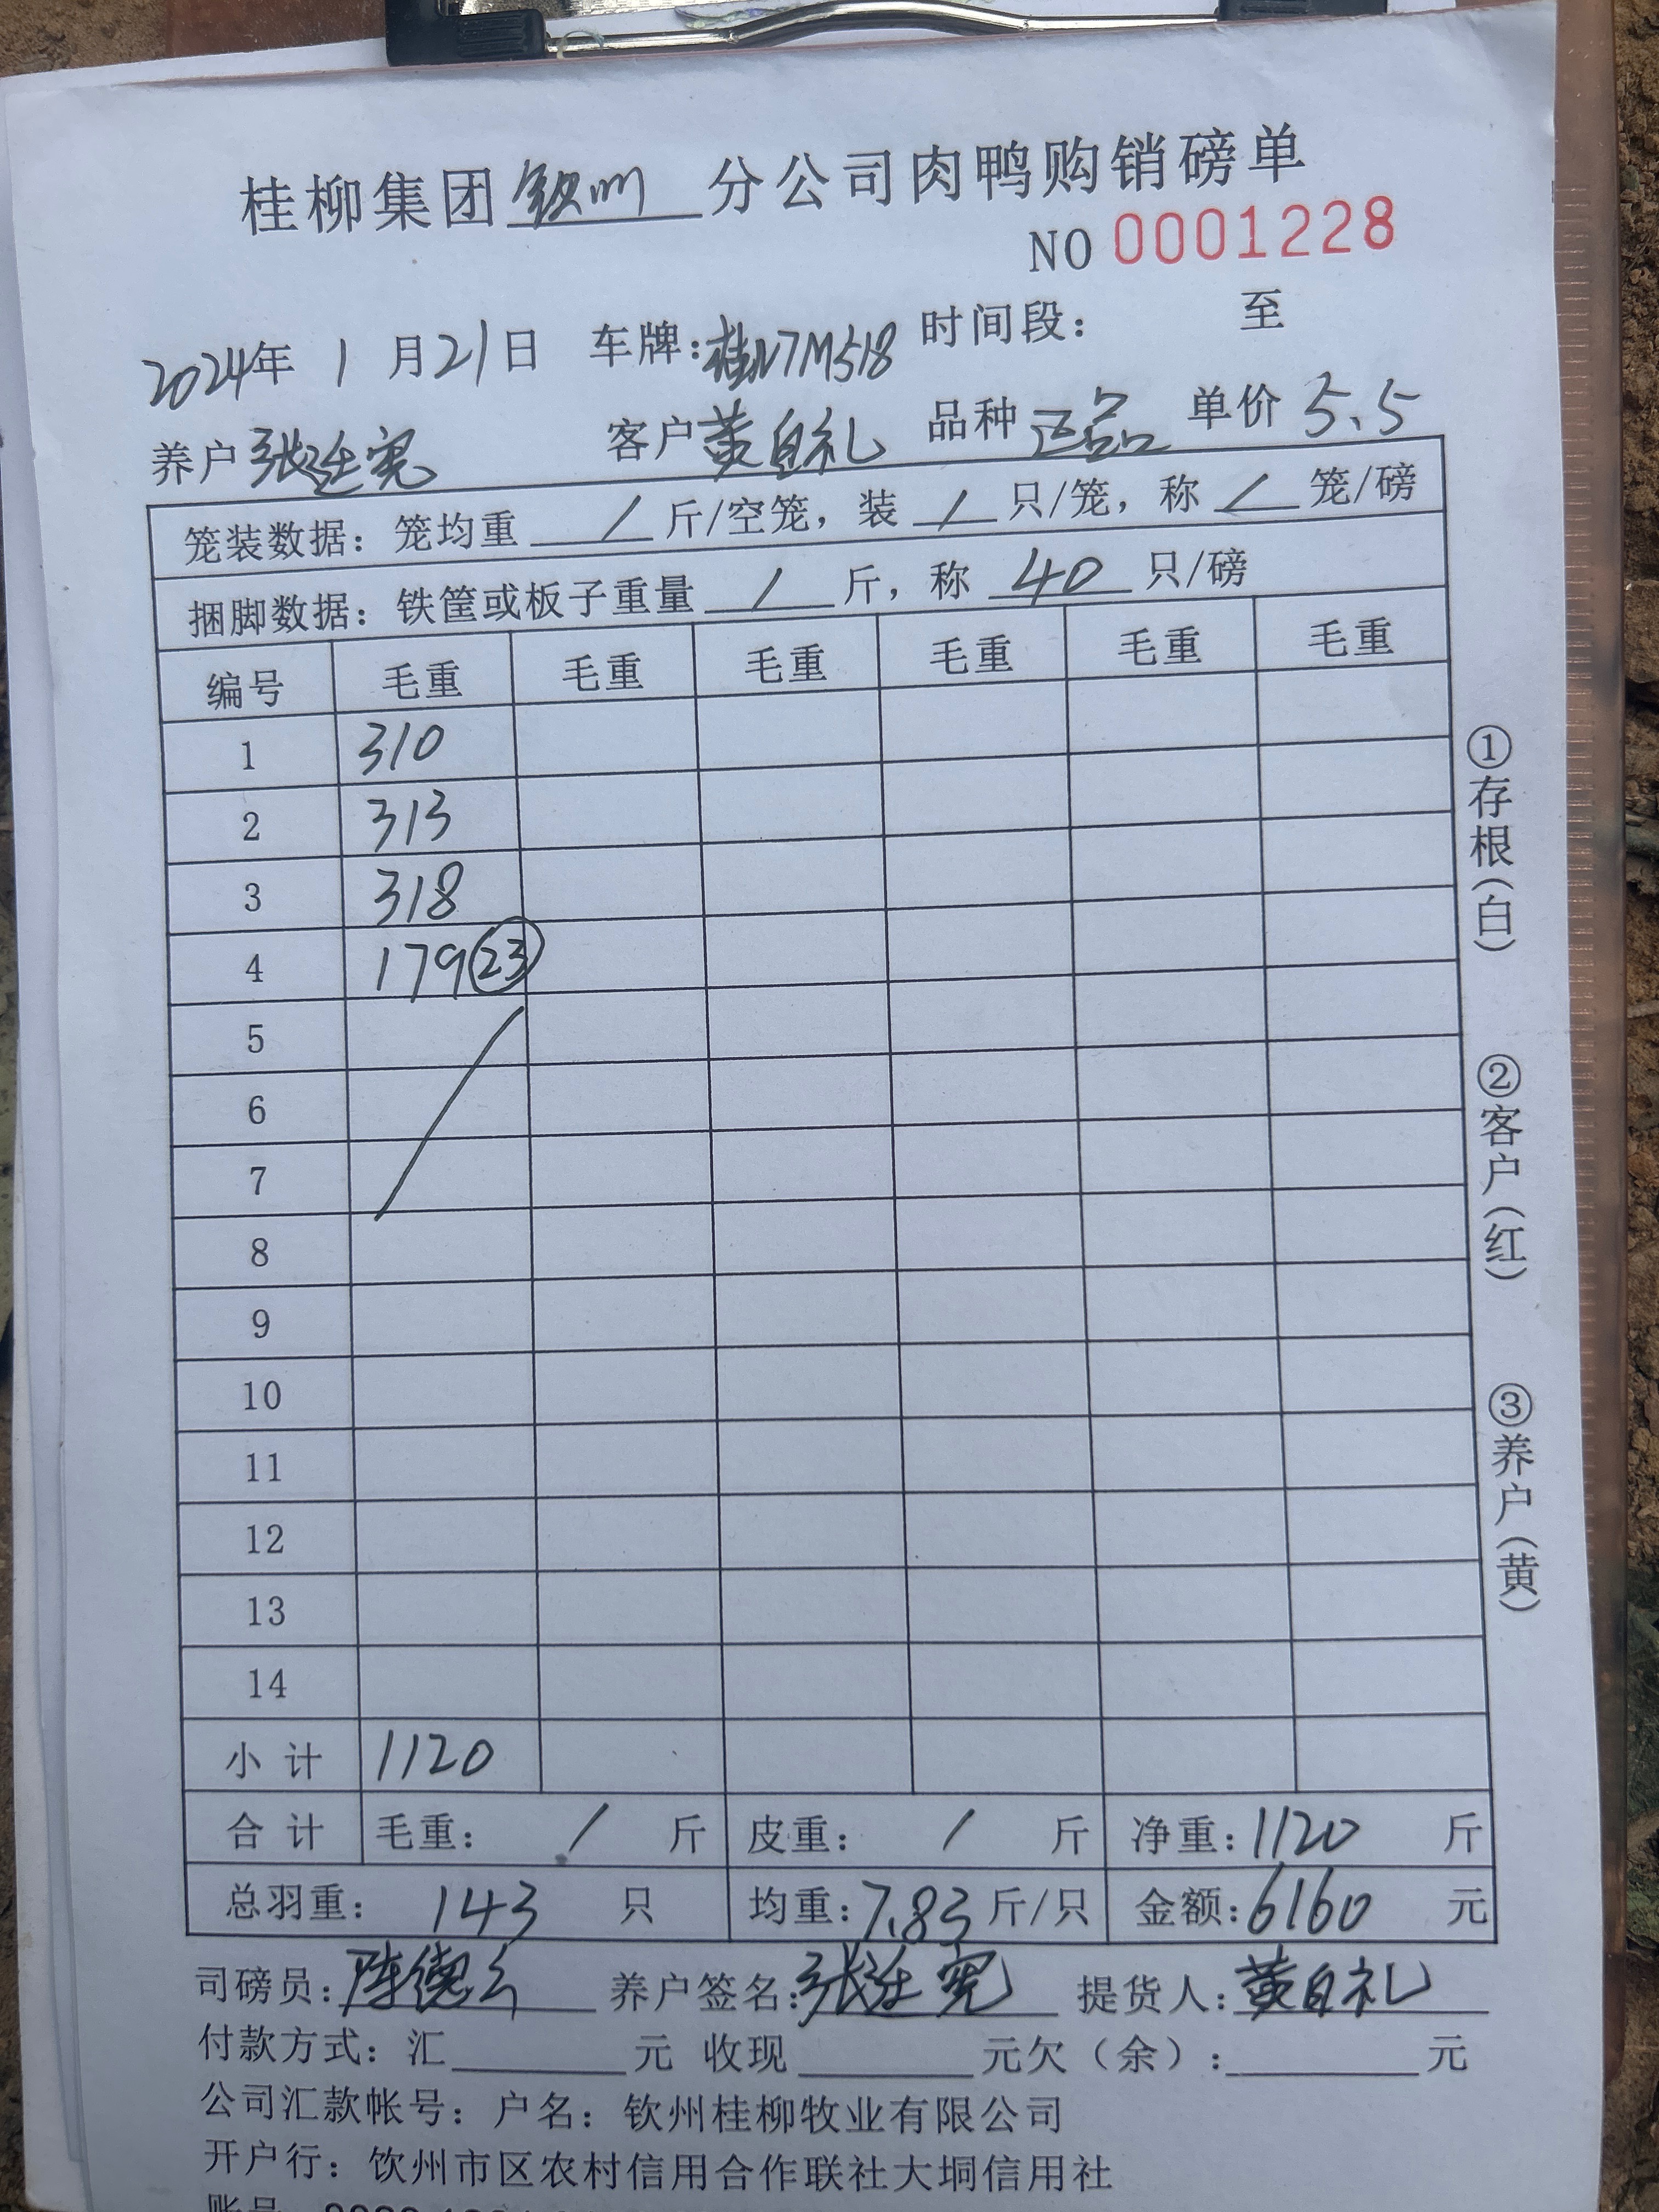 桂柳集团钦州分公司肉鸭购销磅单
NO 0001228
2024年 1 月21日 车牌:桂N7M518 时间段: 至
养户 张廷宪 客户 黄自礼 品种 正品 单价 5.5
笼装数据: 笼均重 / 斤/空笼, 装 / 只/笼, 称 / 笼/磅
捆脚数据: 铁筐或板子重量 / 斤, 称 40 只/磅
编号 毛重 毛重 毛重 毛重 毛重 毛重
1 310
2 313
3 318
4 179 23
5
6
7
8
9
10
11
12
13
14
小 计 1120
合 计 毛重: / 斤 皮重: / 斤 净重: 1120 斤
总羽重: 143 只 均重: 7.83 斤/只 金额: 6160 元
司磅员: 陈德云 养户签名: 张廷宪 提货人: 黄自礼
付款方式: 汇 元 收现 元欠(余): 元
公司汇款帐号: 户名: 钦州桂柳牧业有限公司
开户行: 钦州市区农村信用合作联社大垌信用社
①存根(白)
②客户(红)
③养户(黄)